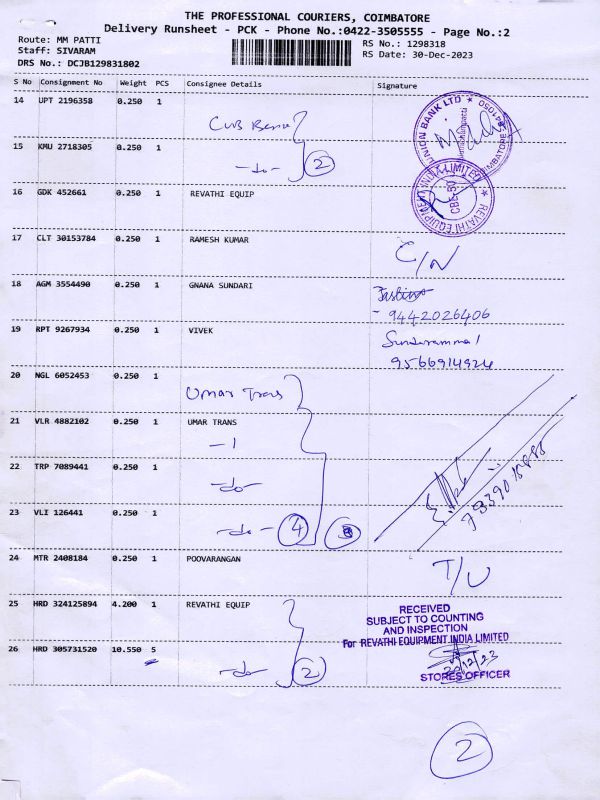 THE PROFESSIONAL COURIERS, COIMBATORE
Delivery Runsheet - PCK - Phone No.:0422-3505555 - Page No.:2
Route: MM PATTI
RS No.: 1298318
Staff: SIVARAM
RS Date: 30-Dec-2023
DRS No.: DCJB129831802
S No Consignment No Weight PCS Consignee Details Signature
14 UPT 2196358 0.250 1
CUB
UNION BANK LTD
15 KMU 2718305 0.250 1
-do- 2
16 GDK 452661 0.250 1 REVATHI EQUIP
REVATHI EQUIPMENT INDIA LIMITED
CBE-50
17 CLT 30153784 0.250 1 RAMESH KUMAR
C/N
18 AGM 3554490 0.250 1 GNANA SUNDARI
- 9442026406
19 RPT 9267934 0.250 1 VIVEK
9566914924
20 NGL 6052453 0.250 1
Umar Trans
21 VLR 4882102 0.250 1 UMAR TRANS
-1
22 TRP 7089441 0.250 1
-do-
23 VLI 126441 0.250 1
-do- 4
24 MTR 2408184 0.250 1 POOVARANGAN
T/U
25 HRD 324125894 4.200 1 REVATHI EQUIP
RECEIVED
SUBJECT TO COUNTING
AND INSPECTION
For REVATHI EQUIPMENT INDIA LIMITED
26 HRD 305731520 10.550 5
-do- 2
STORES OFFICER
2